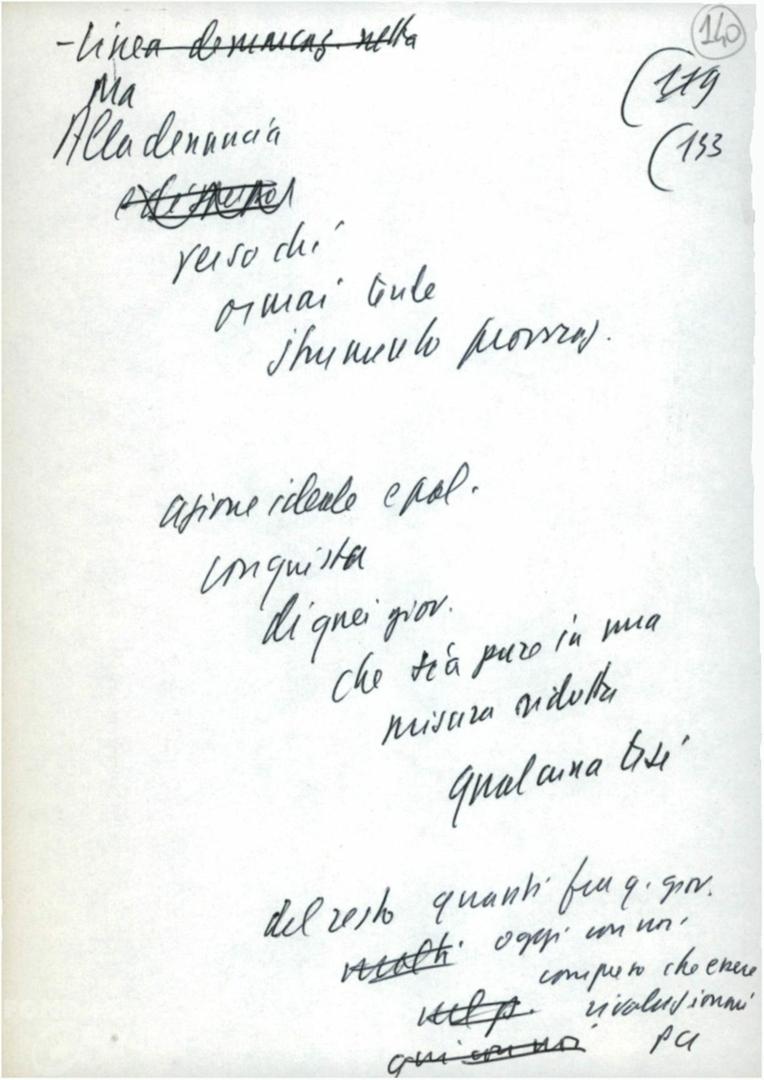 140
(119
(133
- linea demarcaz. nella
Ma
Alla denuncia
verso chi
ormai tende
strumento provocaz.
azione ideale e pol.
conquista
di quei giov.
che sia pure in una
misura ridotta
qualcuna tesi
del resto quanti fra q. giov.
molti oggi con noi
compreso che essere
nel p. rivoluzionari
qui con noi PCI